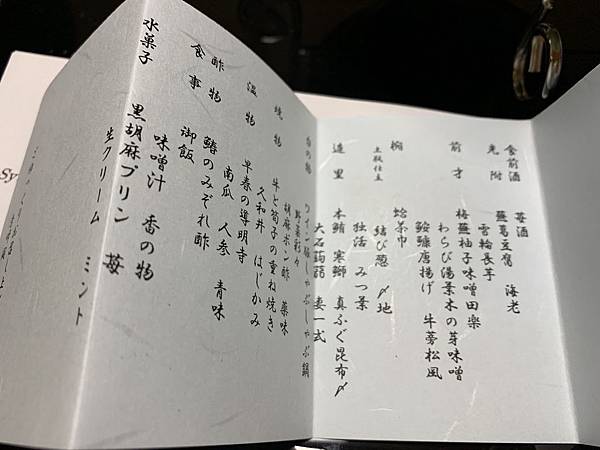 食前酒 苺酒
先附 蕪葛豆腐 海老
雪輪長芋
前才 梅蕪柚子味噌田楽
わらび湯葉木の芽味噌
鮟鱇唐揚げ 牛蒡松風
椀 蛤茶巾
土瓶仕立 結び葱 〆地
独活 みつ葉
造里 本鮪 寒鰤 真ふぐ昆布〆
大石蒟蒻 妻一式
台の物 ワイン豚しゃぶしゃぶ鍋
野菜彩々
胡麻ポン酢 薬味
焼物 牛と筍子の重ね焼き
久和井 はじかみ
温物 早春の導明寺
南瓜 人参 青味
酢物 鰆のみぞれ酢
食事 御飯
味噌汁 香の物
水菓子 黒胡麻プリン 苺
生クリーム ミント
Sy